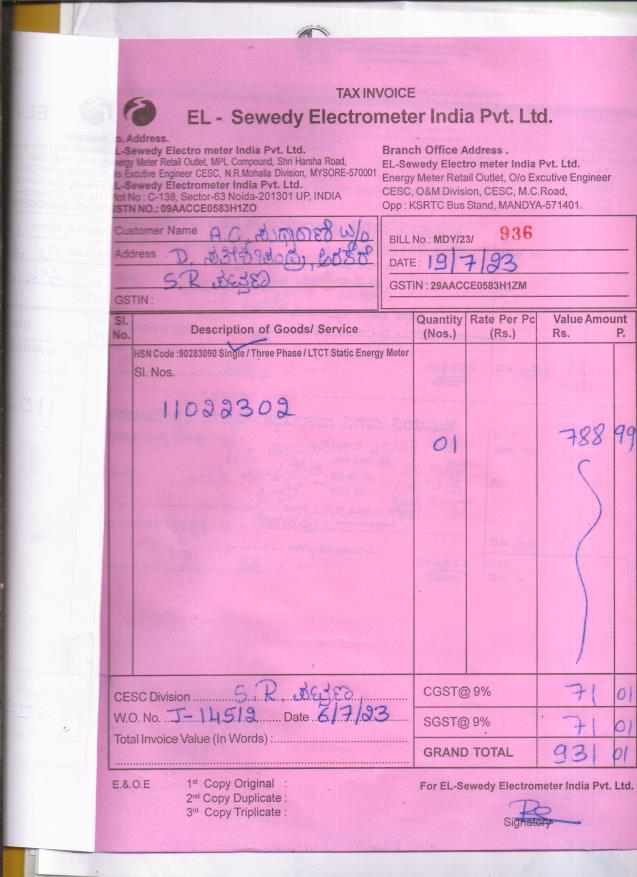 TAX INVOICE
EL - Sewedy Electrometer India Pvt. Ltd.
o. Address.
L-Sewedy Electro meter India Pvt. Ltd.
nergy Meter Retail Outlet, MPL Compound, Shri Harsha Road,
/o Excutive Engineer CESC, N.R.Mohalla Division, MYSORE-570001
L-Sewedy Electrometer India Pvt. Ltd.
lot No : C-138, Sector-63 Noida-201301 UP, INDIA
GSTN NO.: 09AACCE0583H1ZO
Branch Office Address .
EL-Sewedy Electro meter India Pvt. Ltd.
Energy Meter Retail Outlet, O/o Excutive Engineer
CESC, O&M Division, CESC, M.C.Road,
Opp : KSRTC Bus Stand, MANDYA-571401.
Customer Name A.C. W/o
Address D.
S.R ಪಟ್ಟಣ
GSTIN :
BILL No.: MDY/23/ 936
DATE : 19/7/23
GSTIN : 29AACCE0583H1ZM
Sl. No. Description of Goods/ Service Quantity (Nos.) Rate Per Pc (Rs.) Value Amount Rs. P.
HSN Code :90283090 Single / Three Phase / LTCT Static Energy Meter
Sl. Nos.
11022302
01 788 99
CESC Division S.R. ಪಟ್ಟಣ
W.O. No. J-14512 Date 6/7/23
Total Invoice Value (In Words) :
CGST@ 9% 71 01
SGST@ 9% 71 01
GRAND TOTAL 931 01
E.& O.E 1st Copy Original :
2nd Copy Duplicate :
3rd Copy Triplicate :
For EL-Sewedy Electrometer India Pvt. Ltd.
Signatory